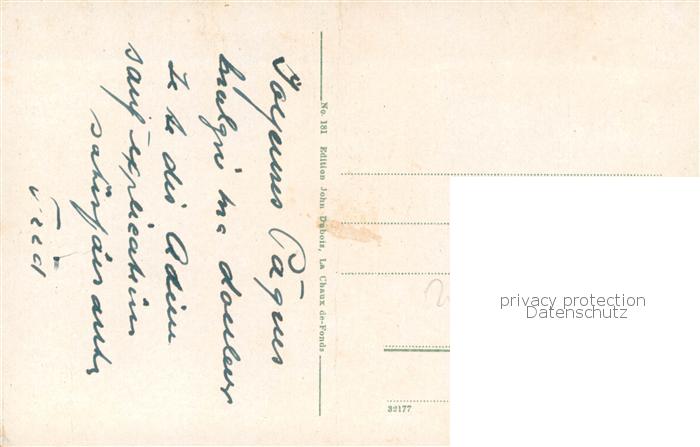 Joyeuses Pâques
malgré ma douleur
Je te dis Adieu
sauf explications
satisfaisantes
Fred
No. 181 Edition John Dubois, La Chaux de-Fonds
32177
privacy protection
Datenschutz